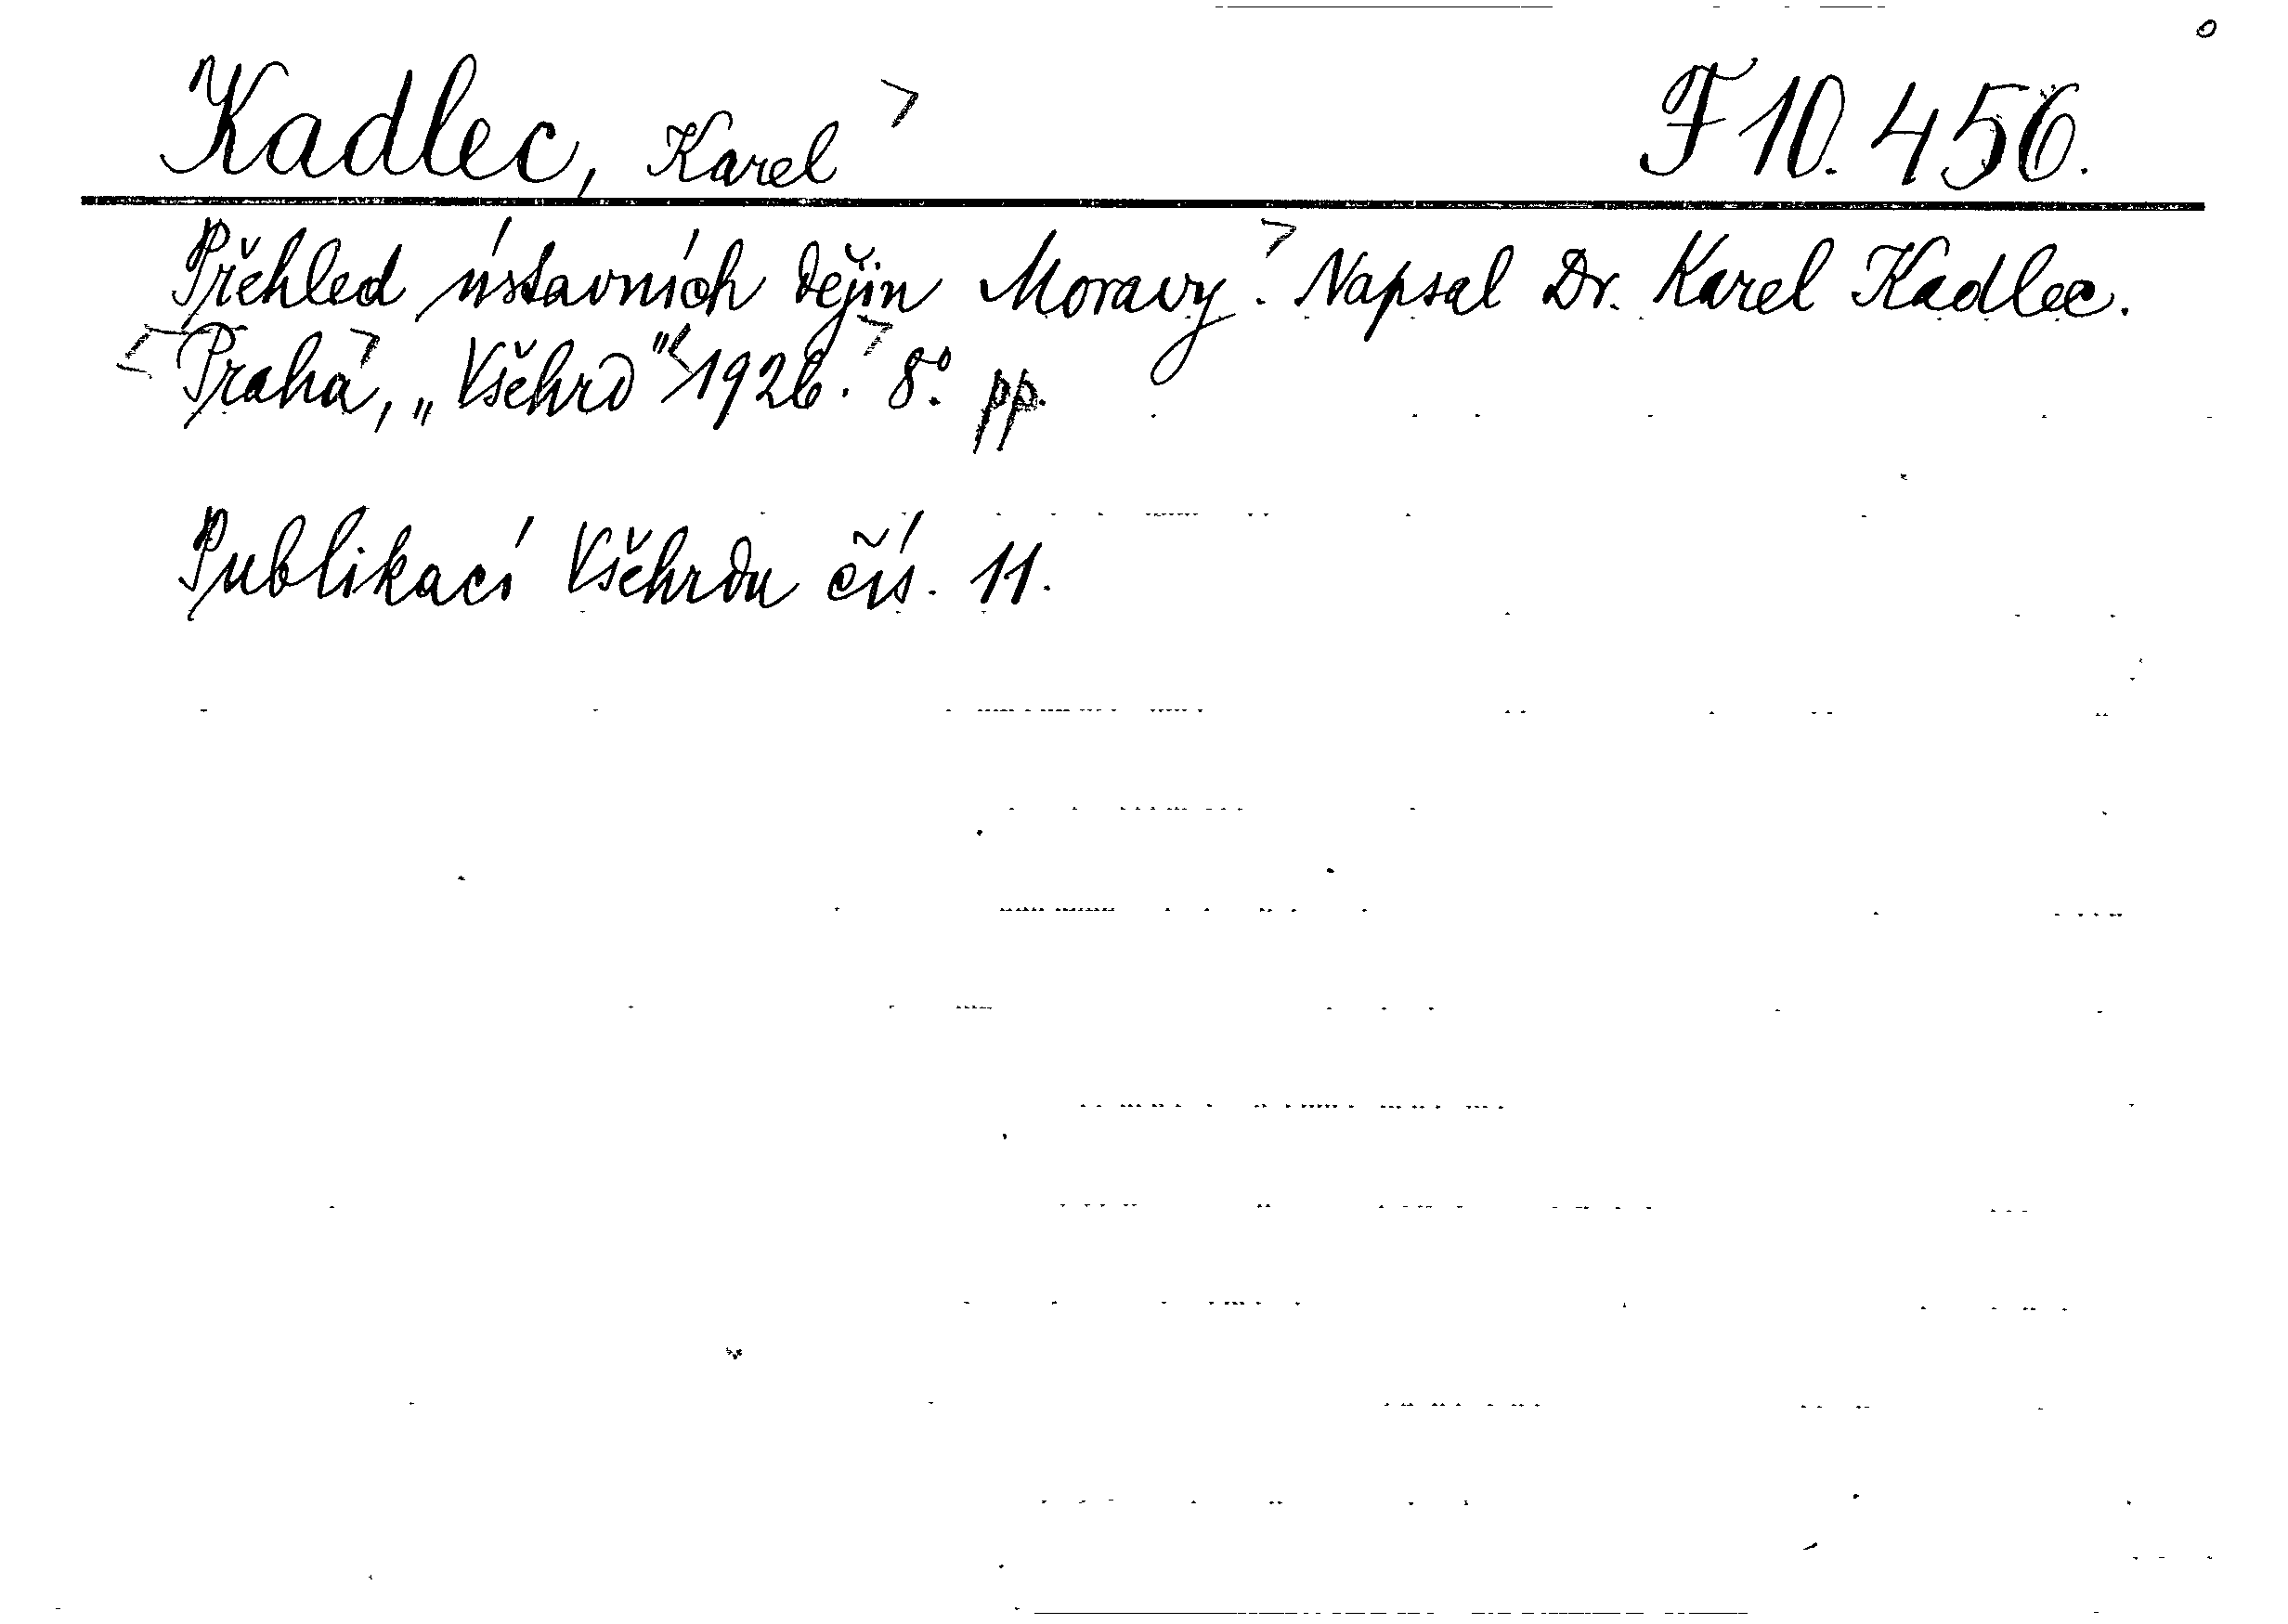 Kadlec, Karel F 10.456.
Přehled ústavních dějin Moravy. Napsal Dr. Karel Kadlec.
Praha, „Všehrd" 1926. 8º. pp.
Publikací Všehrdu čís. 11.